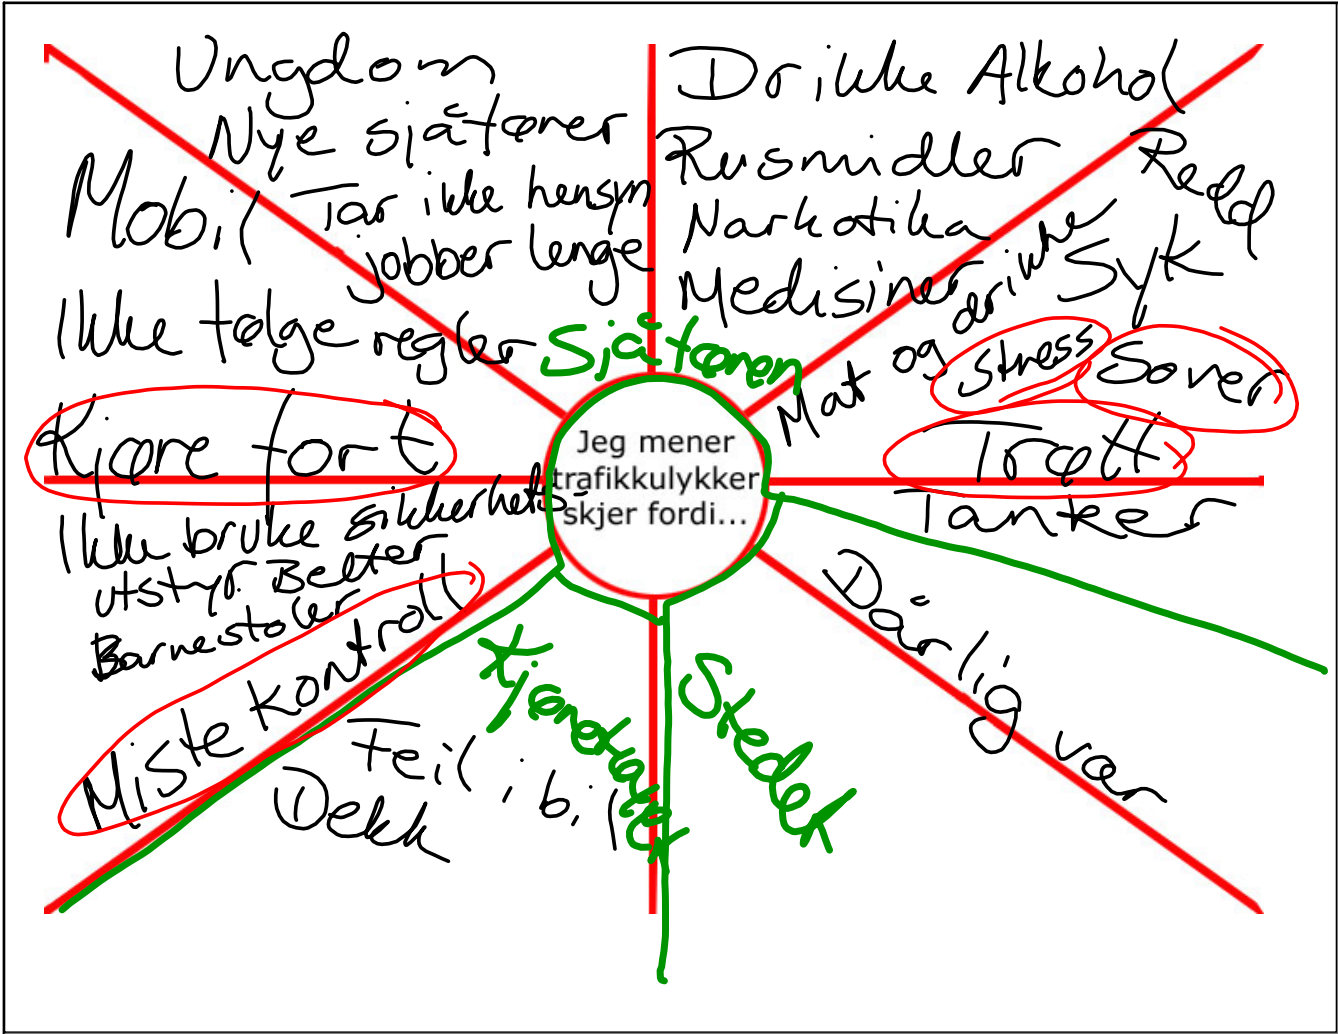 Ungdom
Nye sjåfører
Tar ikke hensyn
jobber lenge
Mobil
Ikke følge regler
Kjøre fort
Ikke bruke sikkerhets-
utstyr. Belter
Barnestoler
Miste kontroll
Feil i bil
Dekk
Drikke Alkohol
Rusmidler
Narkotika
Medisiner
Redd
Syk
Mat og drikke
stress
Sover
Trøtt
Tanker
Dårlig vær
Sjåføren
Jeg mener
trafikkulykker
skjer fordi...
Kjøretøyer
Stedet